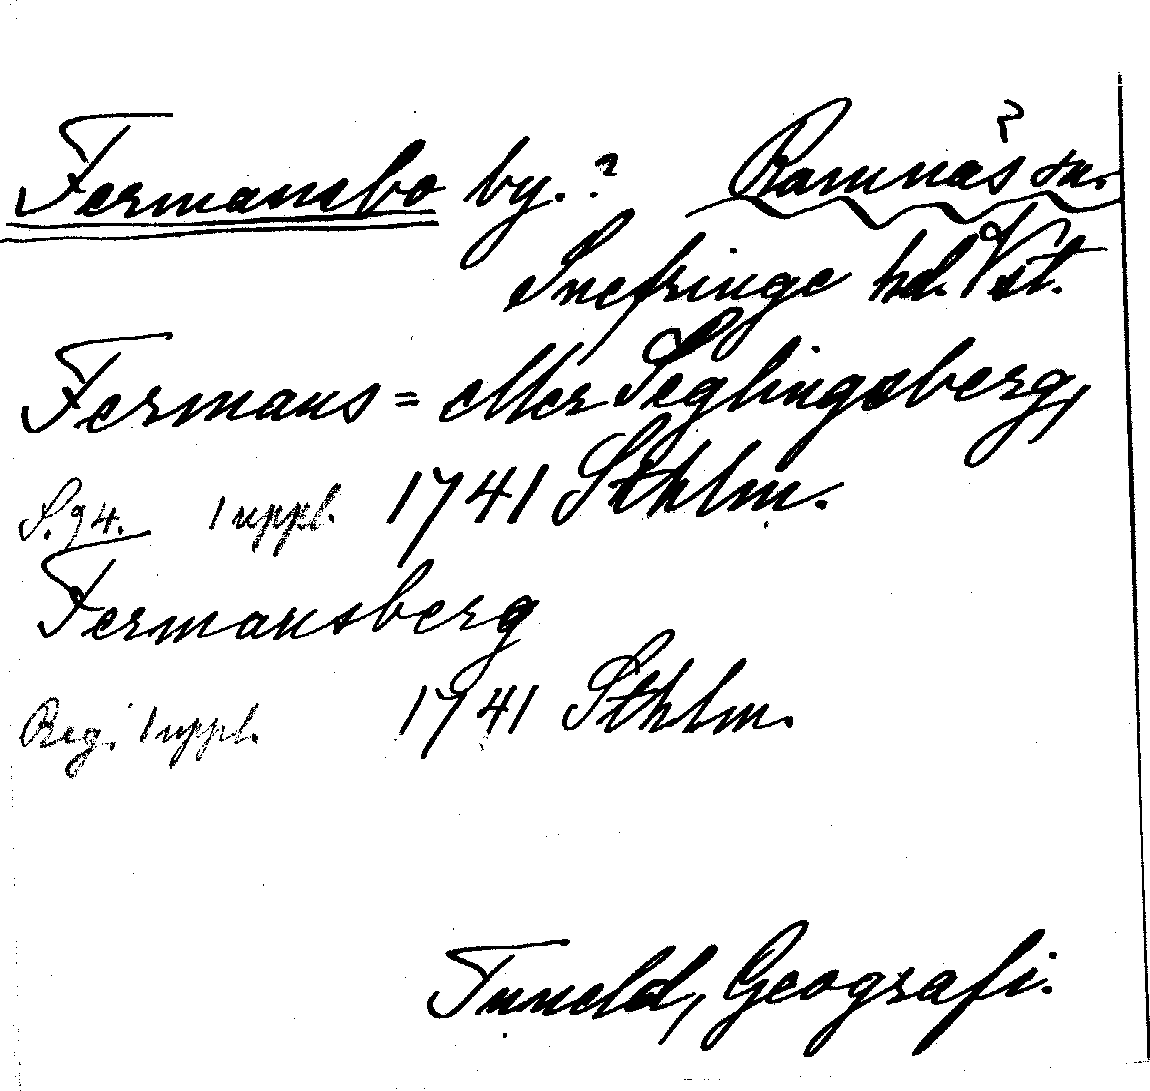 Fermansbo by. ? Ramnäs sn. ?
Snefringe hd. Vstl.
Fermans = eller Seglingsberg,
S. 94. 1 uppl. 1741 Sthlm.
Fermansberg
Reg. 1 uppl. 1741 Sthlm.
Tuneld, Geografi.